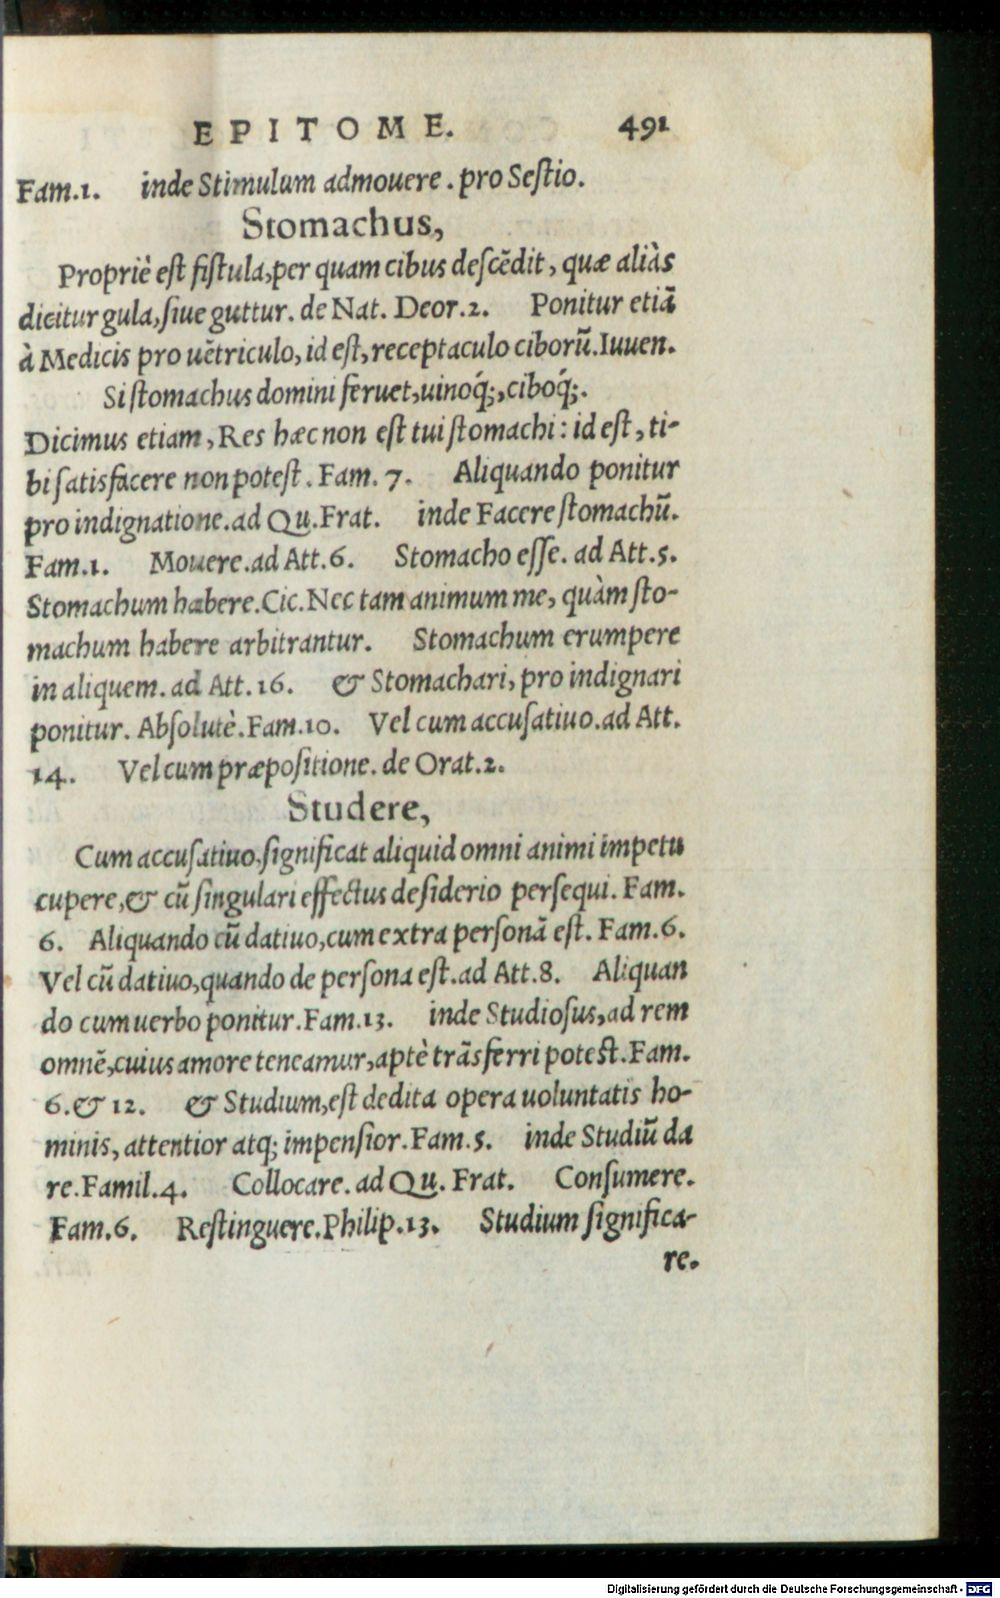 EPITOME. 491
Fam.1. inde Stimulum admouere. pro Seſtio.
Stomachus,
Propriè eſt fiſtula, per quam cibus deſcẽdit, quæ aliàs
dicitur gula, ſiue guttur. de Nat. Deor.2. Ponitur etiã
à Medicis pro uẽtriculo, id eſt, receptaculo ciborũ. Iuuen.
Si ſtomachus domini feruet, uinoq́;, ciboq́;.
Dicimus etiam, Res hæc non eſt tui ſtomachi: id eſt, ti-
bi ſatisfacere non poteſt. Fam. 7. Aliquando ponitur
pro indignatione. ad Qu. Frat. inde Facere ſtomachũ.
Fam.1. Mouere. ad Att.6. Stomacho eſſe. ad Att.5.
Stomachum habere. Cic. Nec tam animum me, quàm ſto-
machum habere arbitrantur. Stomachum erumpere
in aliquem. ad Att.16. & Stomachari, pro indignari
ponitur. Abſolutè. Fam.10. Vel cum accuſatiuo. ad Att.
14. Vel cum præpoſitione. de Orat.2.
Studere,
Cum accuſatiuo, ſignificat aliquid omni animi impetu
cupere, & cũ ſingulari effectus deſiderio perſequi. Fam.
6. Aliquando cũ datiuo, cum extra perſonã eſt. Fam.6.
Vel cũ datiuo, quando de perſona eſt. ad Att.8. Aliquan
do cum uerbo ponitur. Fam.13. inde Studioſus, ad rem
omnẽ, cuius amore teneamur, aptè trãsferri poteſt. Fam.
6. & 12. & Studium, eſt dedita opera uoluntatis ho-
minis, attentior atq; impenſior. Fam.5. inde Studiũ da
re. Famil.4. Collocare. ad Qu. Frat. Conſumere.
Fam.6. Reſtinguere. Philip.13. Studium ſignifica-
re.
Digitalisierung gefördert durch die Deutsche Forschungsgemeinschaft - DFG